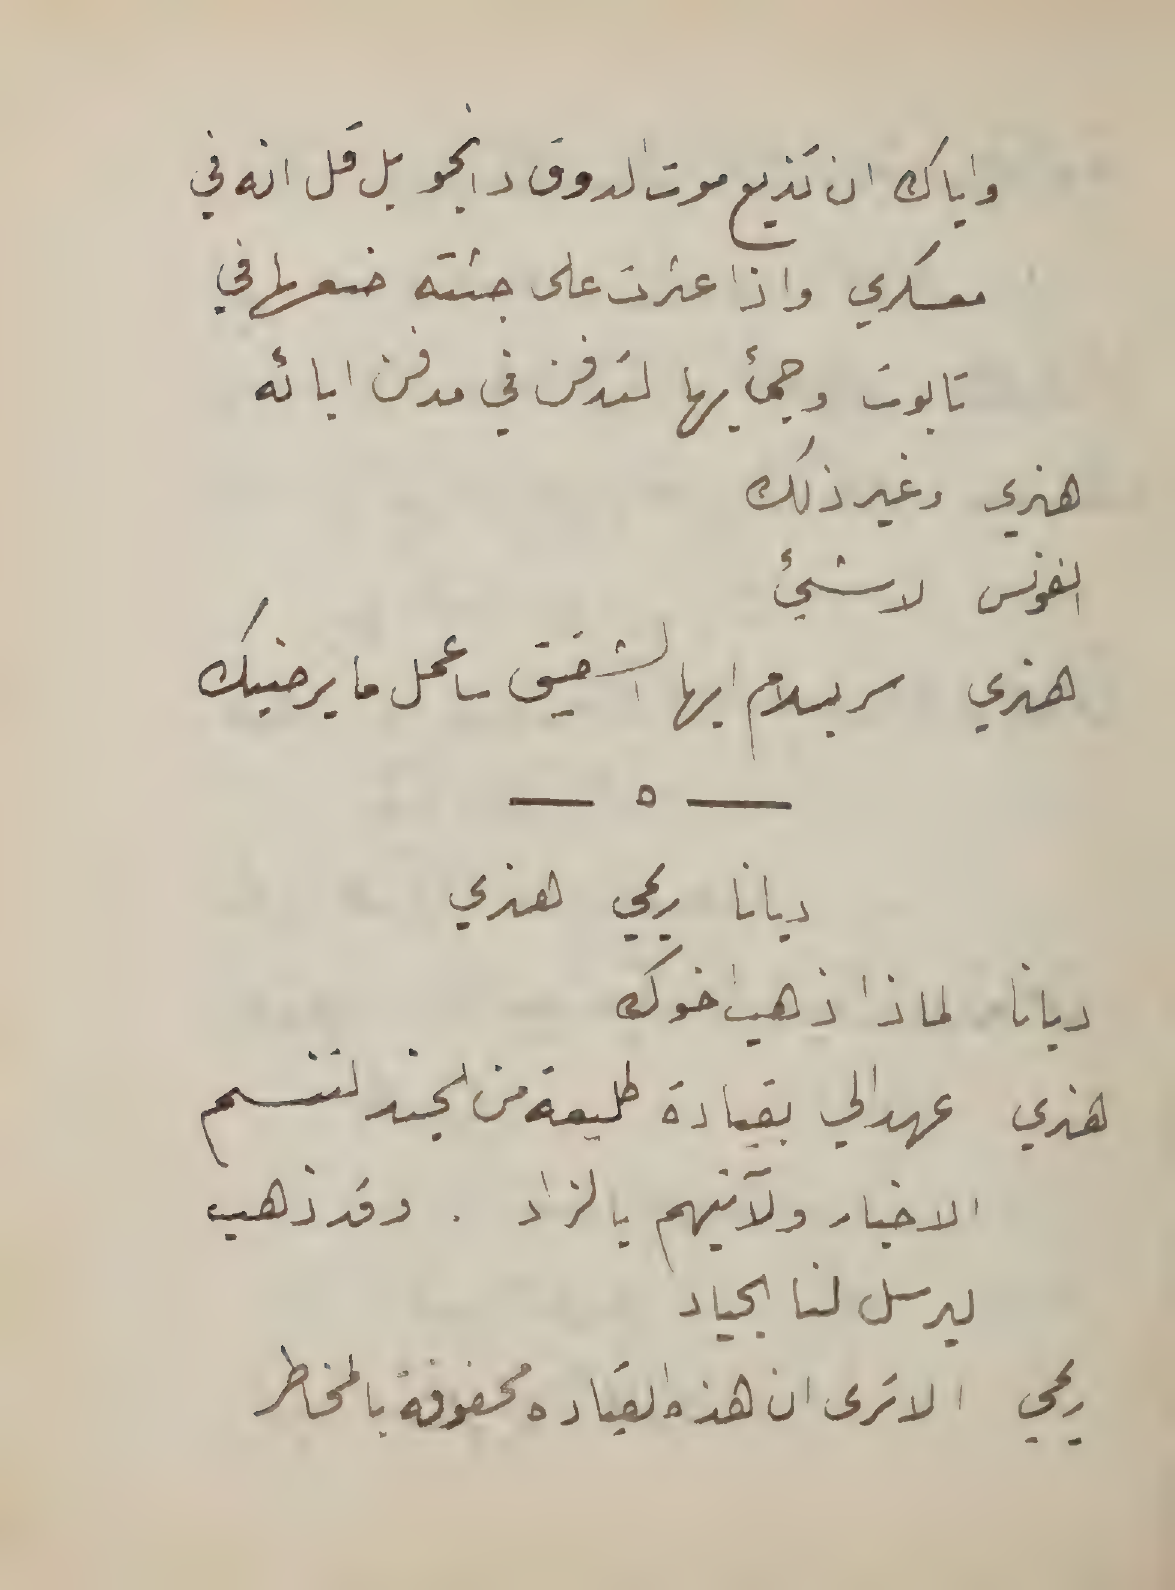 واياك ان تذيع موت الدوق دانجو بل قل انه في
معسكري واذا عثرت على جثته ضعها في
تابوت وجئ بها لتدفن في مدفن ابائه
هنري وغير ذلك
الفونس لا شيئ
هنري سر بسلام ايها الشقيق ساعمل ما يرضيك
— ٥ —
ديانا ريمي هنري
ديانا لماذا ذهب اخوك
هنري عهد الي بقيادة طليعة من الجند لتنسم
الاخبار ولآتيهم بالزاد . وقد ذهب
ليرسل لنا الجياد
ريمي الا ترى ان هذه القياده محفوفة بالمخاطر